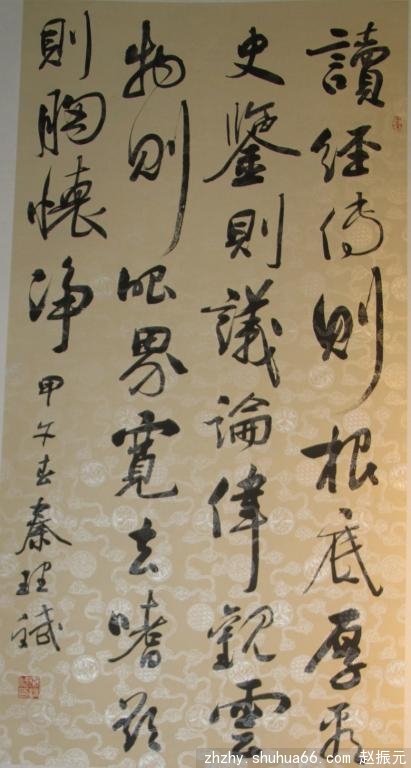 讀經傳則根底厚看
史鑒則議論偉觀雲
物則眼界寬去嗜欲
則胸懷净
甲午春秦理
zhzhy.shuhua66.com 赵振元